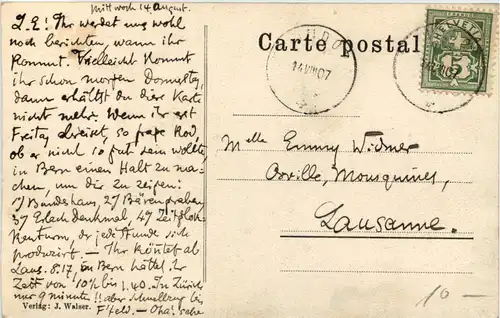 Mittwoch 14 August.
L. E! Ihr werdet uns wohl
noch berichten, wann ihr
kommt. Vielleicht kommt
ihr schon morgen Donnerstag,
dann erhältst du diese Karte
nicht mehr. Wenn ihr erst
Freitag abreiset, so frage
ob er nicht so gut sein wollte,
in Bern einen Halt zu ma-
chen, um dir zu zeigen:
1) Bundeshaus, 2) Bärengraben
3) Erlachdenkmal, 4) Zeitglok-
kenturm, der jede Stunde sich
produzirt. — Ihr könntet ab
Laus. 8.17, in Bern hättet ihr
Zeit von 10 bis 1.40. In Zürich
nur 9 minuten!! aber Schnellzug bis
F'feld. —
Verlag: J. Walser.
Carte postale
14 VIII 07
HELVETIA
Melle Emmy Widmer
Mousquines,
Lausanne.
10 —